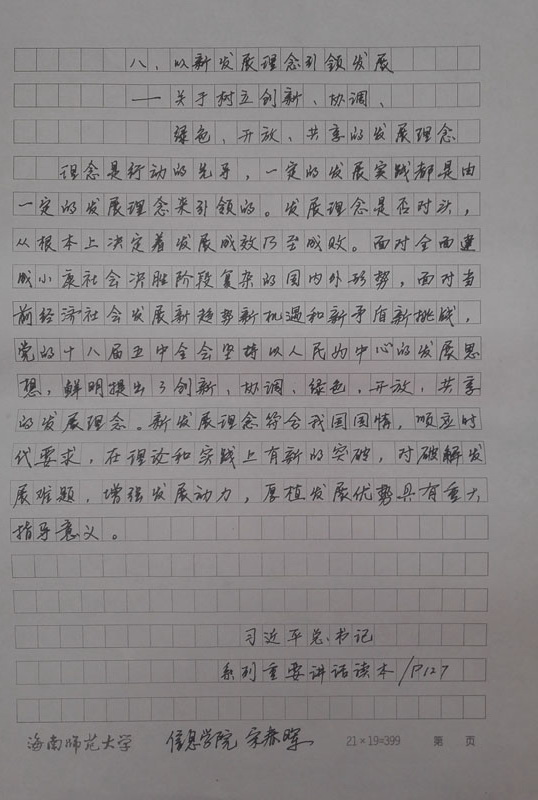 八、以新发展理念引领发展
——关于树立创新、协调、
绿色、开放、共享的发展理念
理念是行动的先导，一定的发展实践都是由
一定的发展理念来引领的。发展理念是否对头，
从根本上决定着发展成效乃至成败。面对全面建
成小康社会决胜阶段复杂的国内外形势，面对当
前经济社会发展新趋势新机遇和新矛盾新挑战，
党的十八届五中全会坚持以人民为中心的发展思
想，鲜明提出了创新、协调、绿色、开放、共享
的发展理念。新发展理念符合我国国情，顺应时
代要求，在理论和实践上有新的突破，对破解发
展难题，增强发展动力，厚植发展优势具有重大
指导意义。
习近平总书记
系列重要讲话读本/P127
海南师范大学 信息学院 宋春晖 21×19=399 第 页